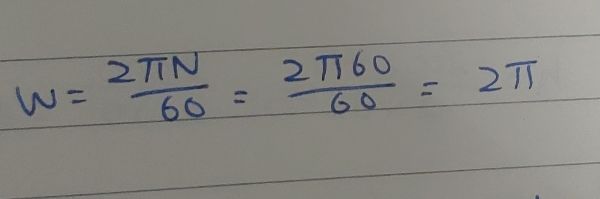 W = 2πN/60 = 2π60/60 = 2π